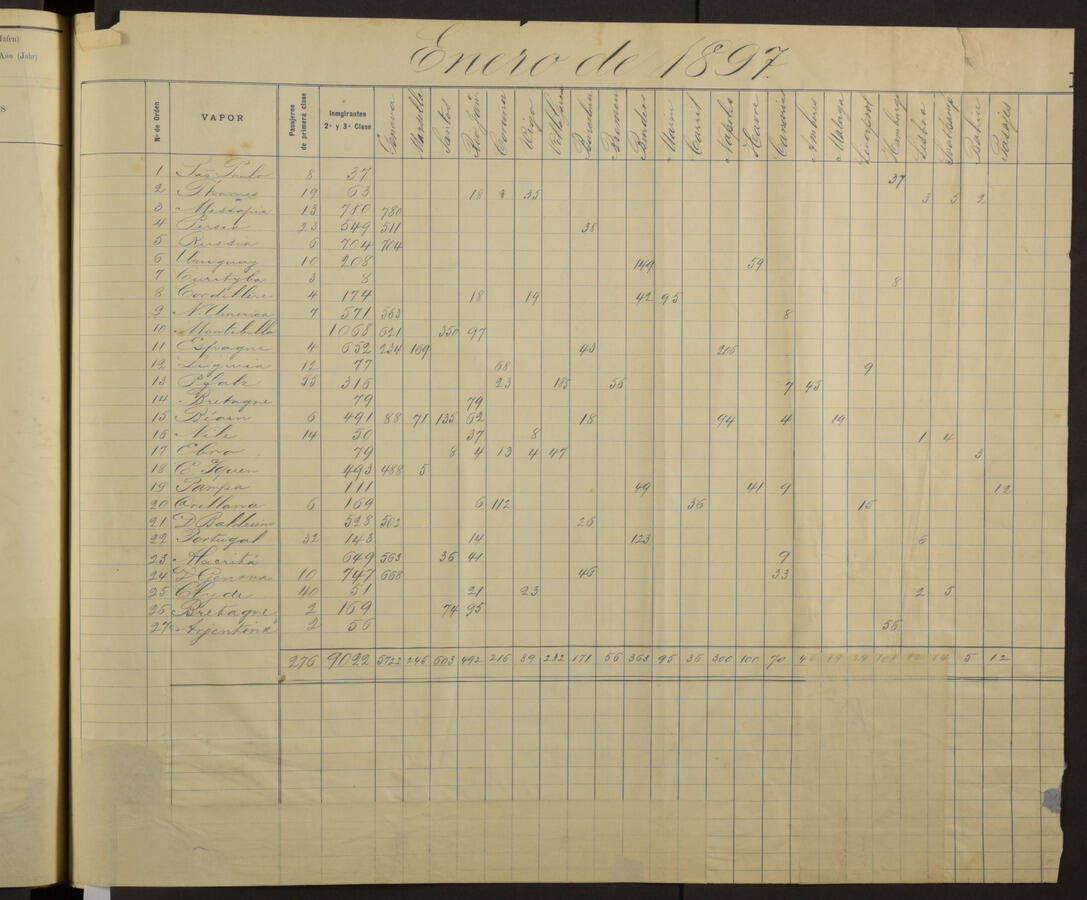 Hafen)
Año (Jahr)
8
Enero de 1897.
Nº de Orden VAPOR Pasajeros de primera clase Inmgirantes 2ª y 3ª Clase Genova Marsella Santos Coruna Vigo Barcelona Bremen Burdeos Marin Carril Napoles Havre Canarias Amberes Malaga Liverpool Hamburgo Lisboa Bahia Pasajes
1 Sao Paulo 8 37 37
2 Thames 19 63 18 35 3 5 2
3 Messapia 13 780 780
4 Perseo 23 549 511 38
5 Russia 6 704 704
6 Uruguay 10 208 149 59
7 Curityba 3 8 8
8 Cordillère 4 174 18 19 42 95
9 N. America 7 571 563 8
10 Montebello 1068 621 350 97
11 Espagne 4 652 234 169 43 206
12 Liguria 12 77 68 9
13 Pfalz 55 316 23 185 56 7 45
14 Bretagne 79 79
15 Béarn 6 491 88 71 135 62 18 94 4 19
16 Nile 14 50 37 8 1 4
17 Ebro 79 8 4 13 4 47 3
18 C. Yquem 493 488 5
19 Pampa 111 49 41 9 12
20 Orellana 6 169 6 112 36 15
21 D. Balduino 528 502 26
22 Portugal 32 143 14 123 6
23 649 563 36 41 9
24 D. Genova 10 747 668 46 33
25 Clyde 40 51 21 23 2 5
26 Bretagne 2 169 74 95
27 Argentina 2 56 56
276 9022 5722 245 603 492 216 89 232 171 56 363 95 36 300 100 70 19 24 101 12 14 5 12